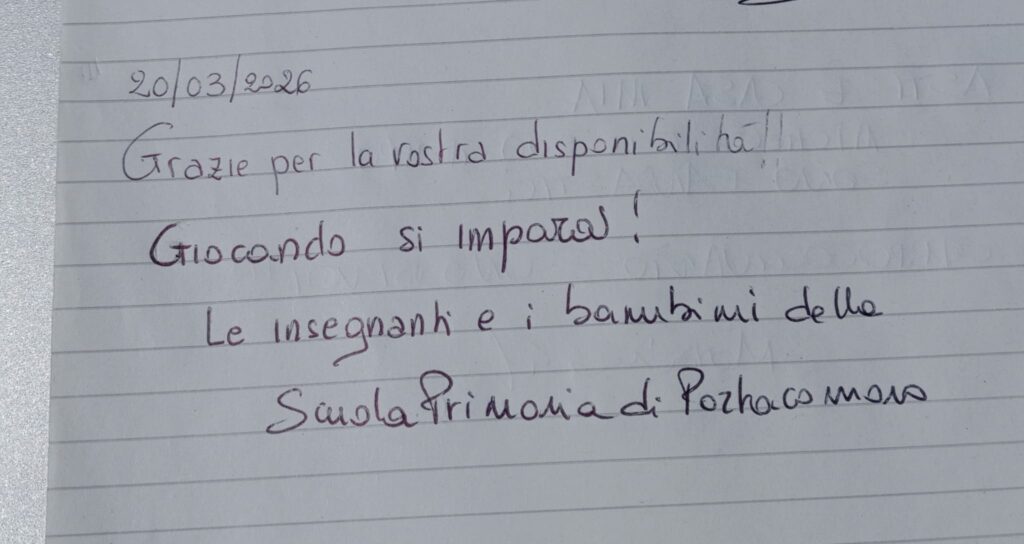 20/03/2026
Grazie per la vostra disponibilità!!
Giocando si impara!
Le insegnanti e i bambini della
Scuola Primaria di Portacomaro